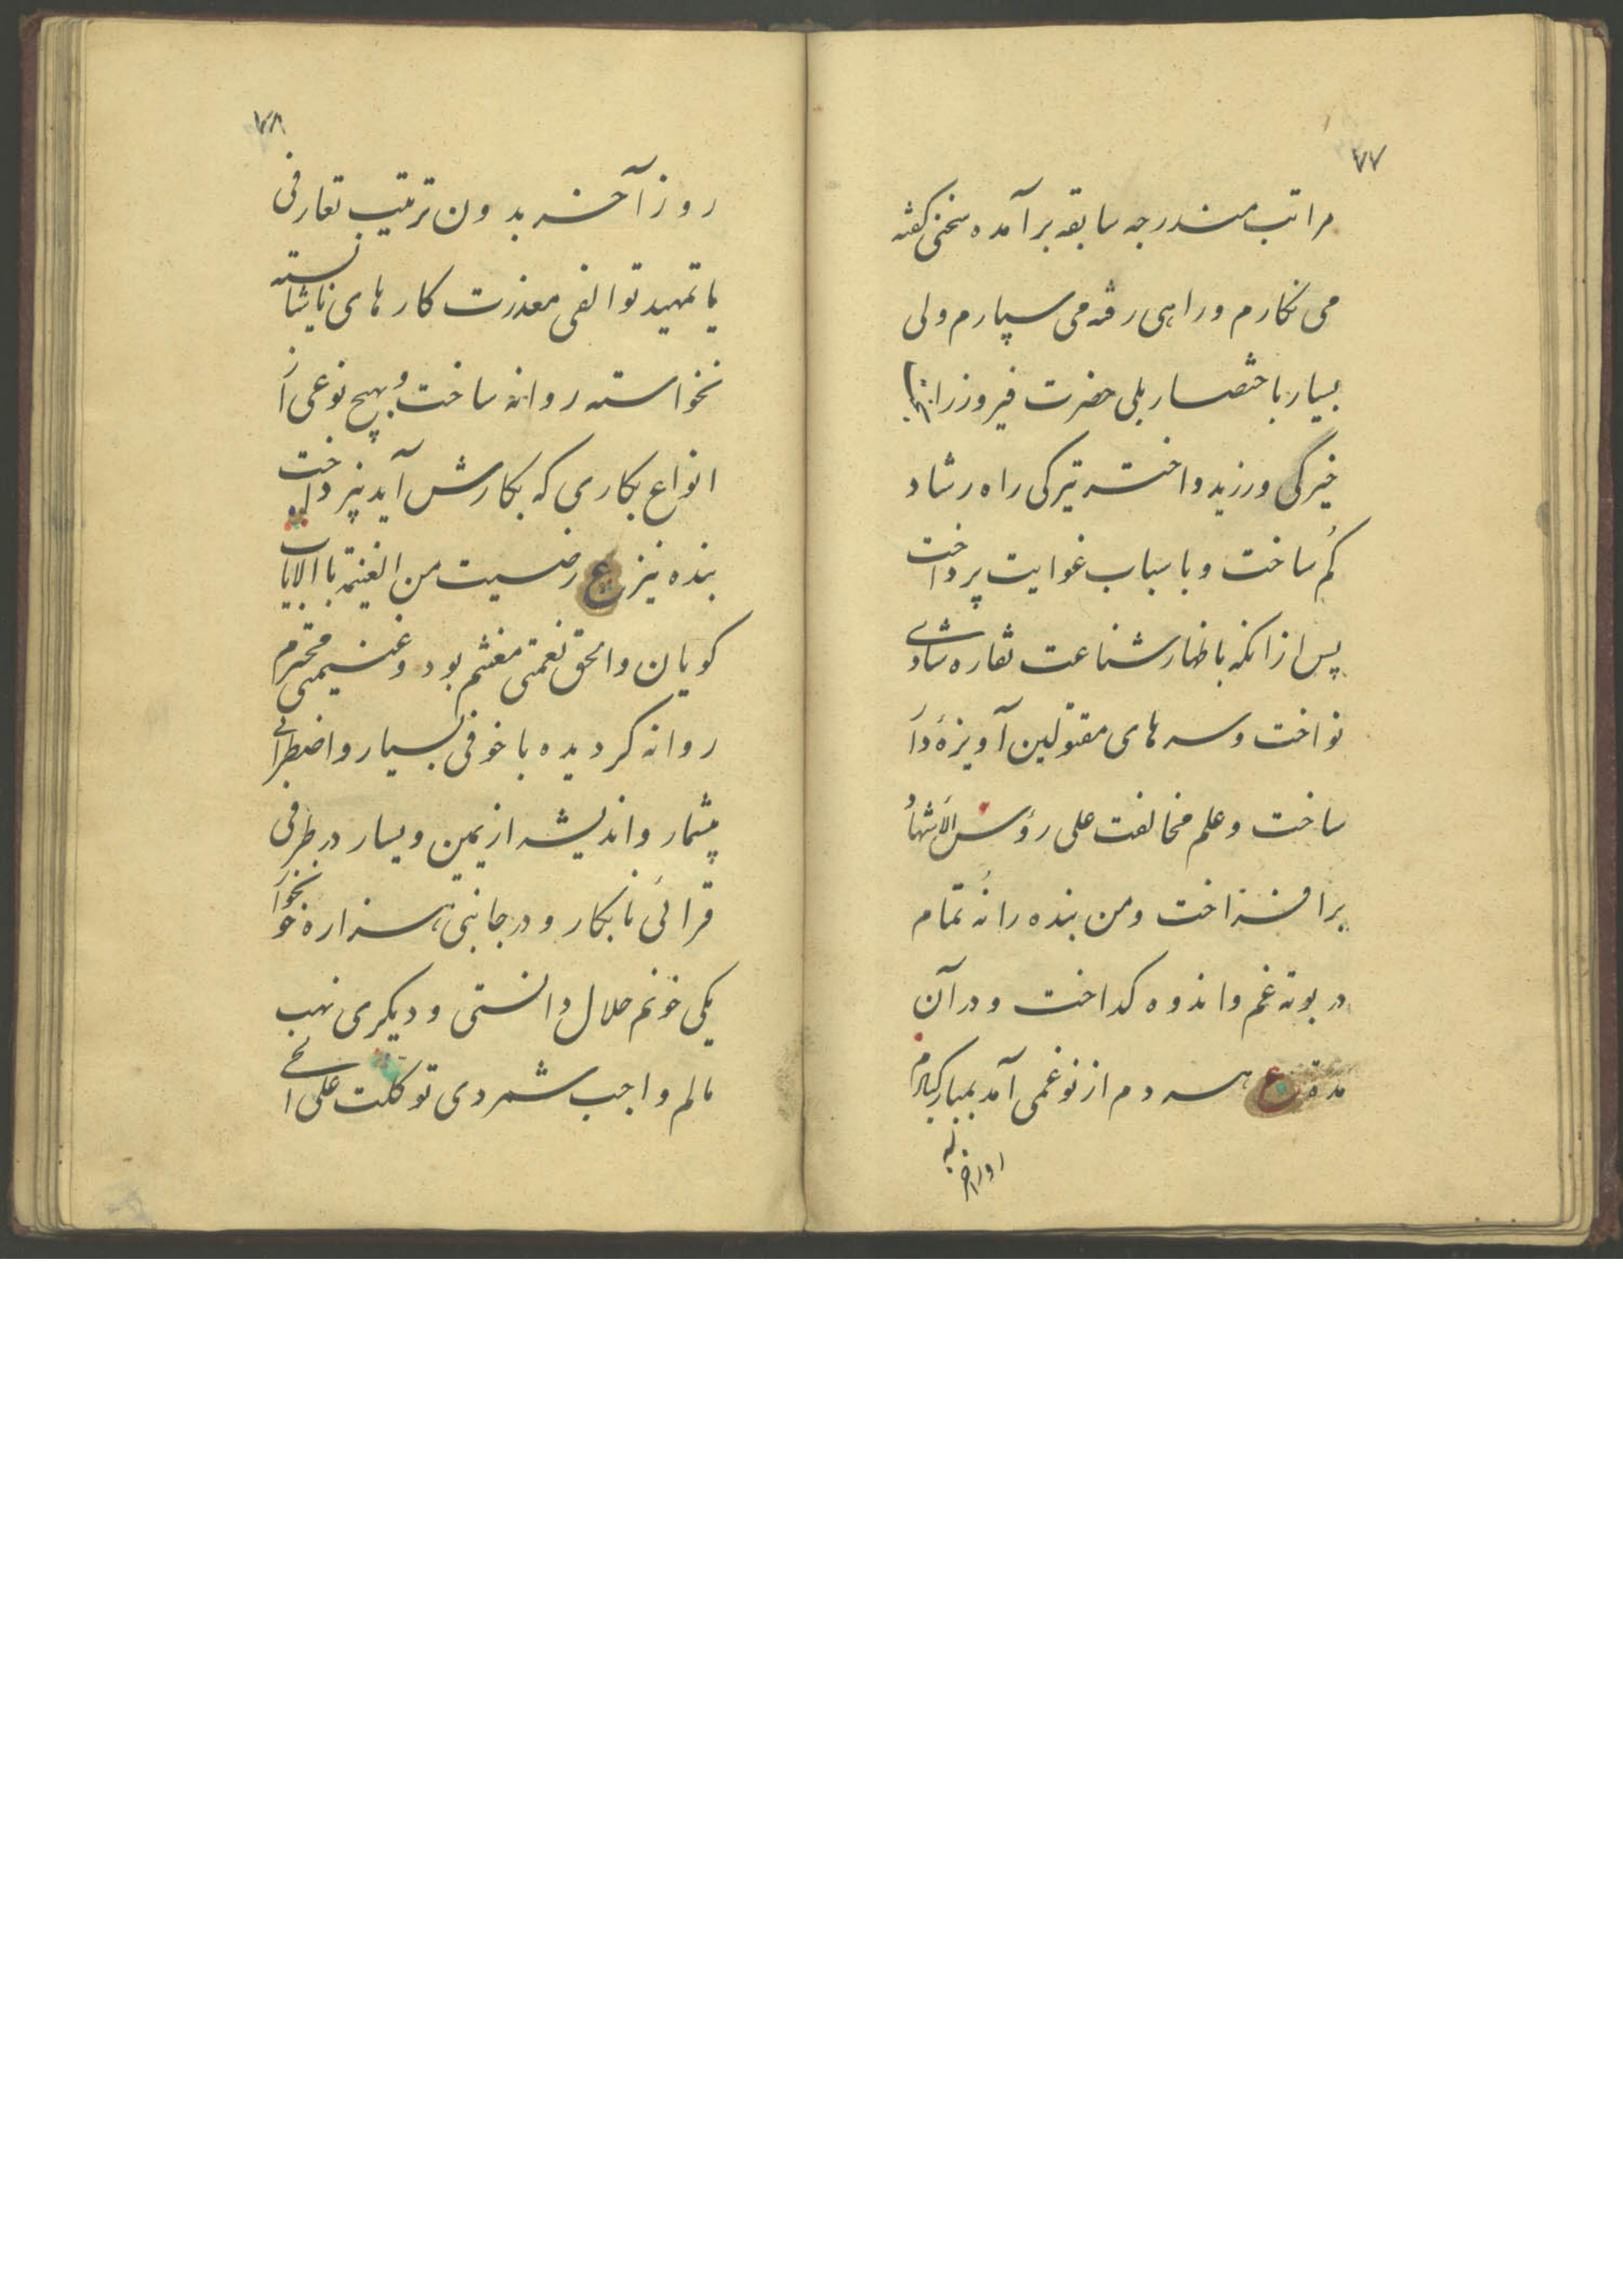 ۷۷
مراتب مندرجه سابقه برآمده سخنی کفته
می نکارم و راهی رفته می سپارم ولی
بسیار باختصار بلی حضرت فیروز را
خیرکی ورزید و اختر تیرکی راه رشاد
کم ساخت و باسباب غوایت پرداخت
پس از انکه باظهار شناعت نقاره شادی
نواخت و سرهای مقتولین آویزهٔ دار
ساخت و علم مخالفت علی رؤس الاشهاد
برافراخت و من بنده را نه تمام
در بوته غم و اندوه کداخت و در آن
مدة ع هر دم از نو غمی آمد بمبارکبادم
او را خر
۷۸
روز آخر بدون ترتیب تعارفی
یا تمهید توالفی معذرت کارهای ناشایسته
نخواسته روانه ساخت و بهیچ نوعی از
انواع بکاری که بکارش آید نپرداخت
بنده نیز ع رضیت من الغنیمة بالایاب
کویان والحق نعمتی مغتنم بود و غنیمتی محترم
روانه کردیده با خوفی بسیار و اضطرابی
بیشمار و اندیشه از یمین و یسار در طرفی
قرائی نابکار و در جانبی هزاره خونخوار
یکی خونم حلال دانستی و دیکری نهب
مالم واجب شمردی توکلت علی الحی